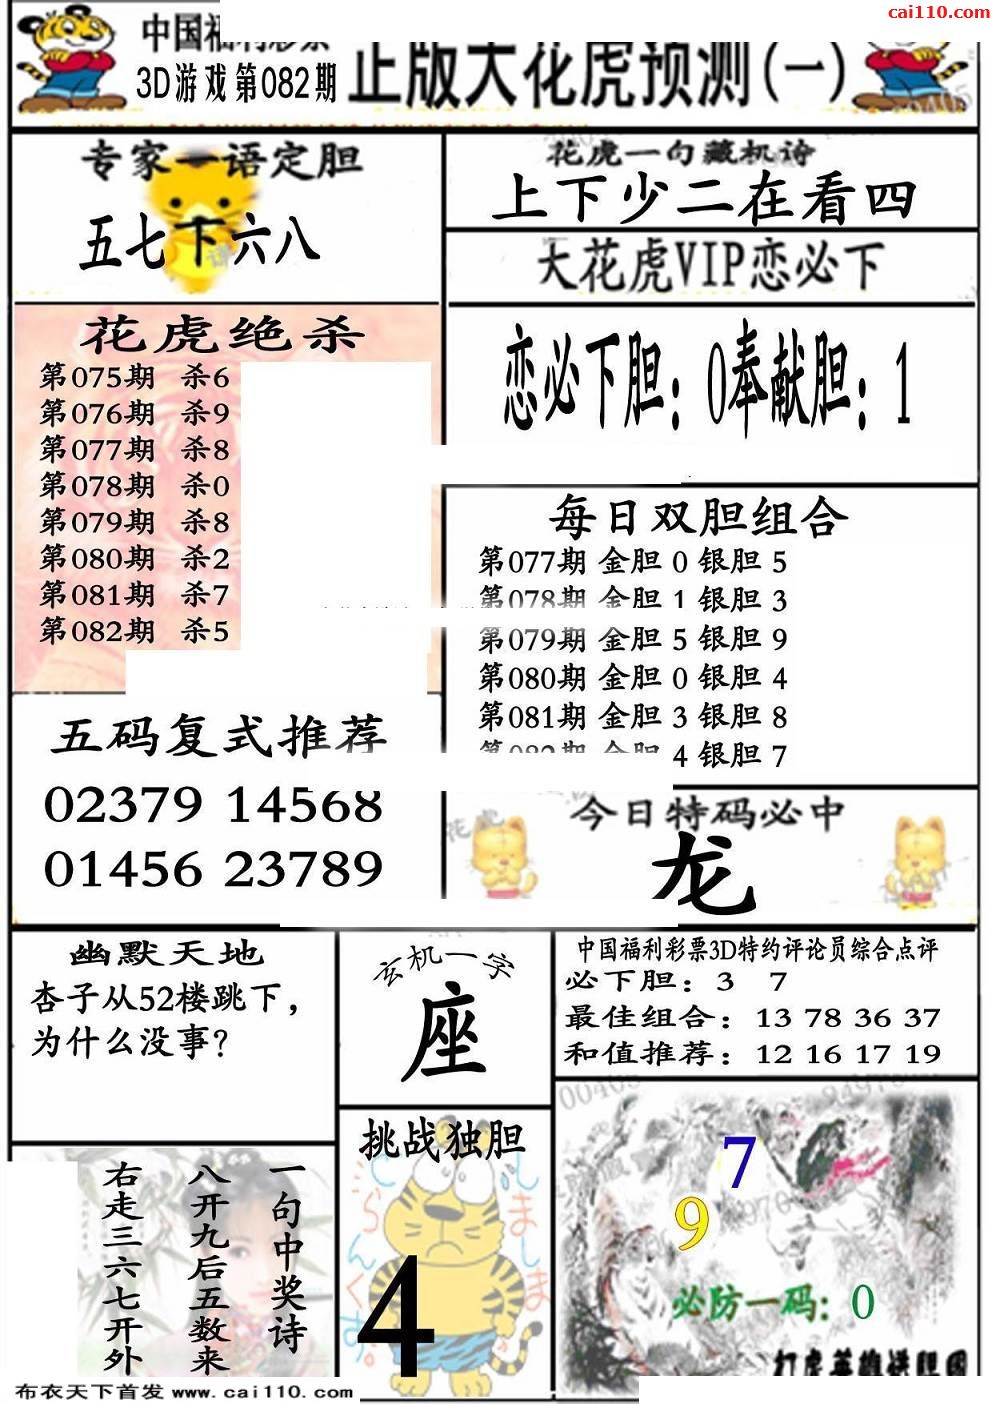 cai110.com
中国福利彩票
3D游戏第082期
正版大花虎预测(一)
专家一语定胆
五七下六八
花虎一句藏机诗
上下少二在看四
大花虎VIP恋必下
恋必下胆：0奉献胆：1
花虎绝杀
第075期 杀6
第076期 杀9
第077期 杀8
第078期 杀0
第079期 杀8
第080期 杀2
第081期 杀7
第082期 杀5
每日双胆组合
第077期 金胆 0 银胆 5
第078期 金胆 1 银胆 3
第079期 金胆 5 银胆 9
第080期 金胆 0 银胆 4
第081期 金胆 3 银胆 8
第082期 金胆 4 银胆 7
五码复式推荐
02379 14568
01456 23789
今日特码必中
龙
幽默天地
杏子从52楼跳下，
为什么没事？
玄机一字
座
中国福利彩票3D特约评论员综合点评
必下胆：3 7
最佳组合：13 78 36 37
和值推荐：12 16 17 19
一句中奖诗
八开九后五数来
右走三六七开外
挑战独胆
4
7
9
必防一码：0
布衣天下首发 www.cai110.com